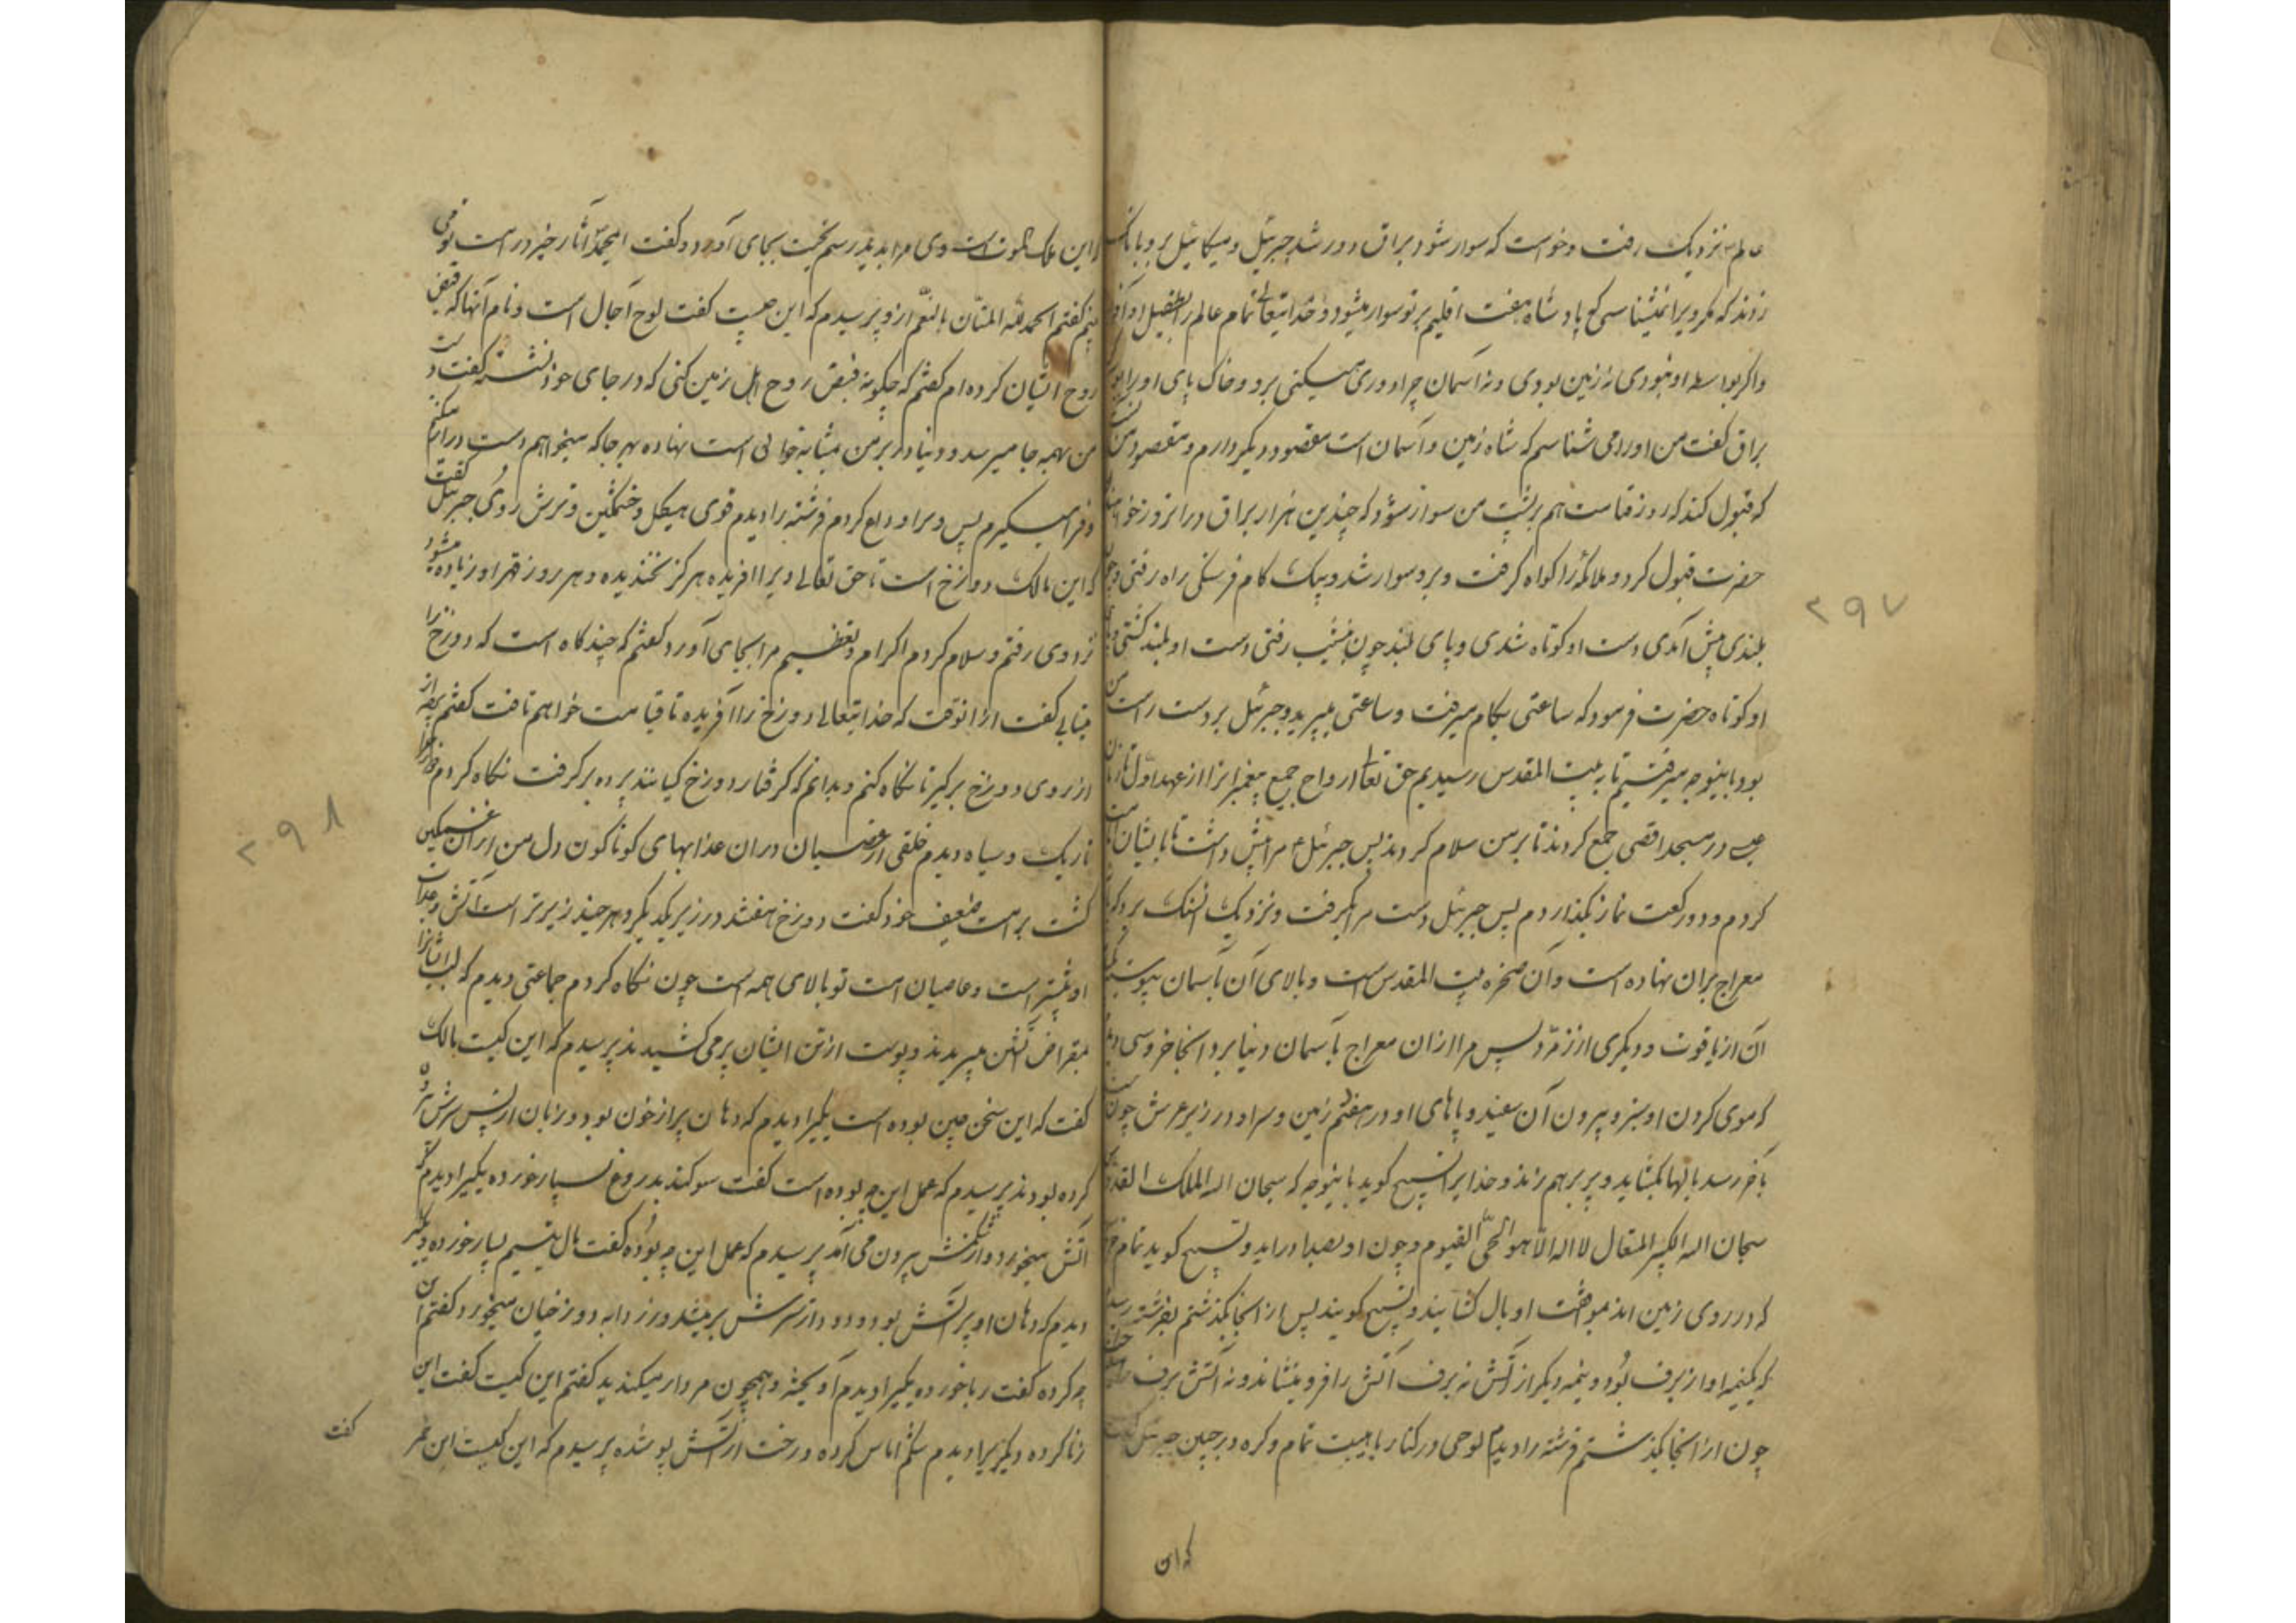 نزدیک رفت وخواست که سوار شود براق دور شد جبرئیل و میکائیل بر وی بانک
زدند که مکر ویرا نمیشناسی که پادشاه هفت اقلیم بر تو سوار میشود و خدایتعالی تمام عالم را بطفیل او آفرید
واکر بواسطه او نبودی نه زمین بودی ونه آسمان چرا دوری میکنی برو وخاک پای او را
براق کفت من اورا می شناسم که شاه زمین وآسمان است مقصود دیکر دارم ومقصود من
که قبول کند که روز قیامت هم بر پشت من سوار شود که چندین هزار براق در انروز
حضرت قبول کرد و ملائکه را کواه کرفت و برو سوار شد و بیک کام فرسنکی راه رفتی و چون
بلندی پیش آمدی دست او کوتاه شدی وپای بلند چون بنشیب رفتی دست او بلند کشتی و پای
او کوتاه حضرت فرمود که ساعتی بکام میرفت وساعتی میپرید وجبرئیل بر دست راست من
بود باینوجه میرفتیم تا به بیت المقدس رسیدیم حق تعالی ارواح جمیع پیغمبرانرا از عهد اول تا زمان
عیسی در مسجد اقصی جمع کردند تا بر من سلام کردند پس جبرئیل ع مرا پیش داشت تا بایشان امامت
کردم ودو رکعت نماز بکذاردم پس جبرئیل دست مرا بکرفت ونزدیک سنک برد که
معراج بران نهاده است وآن صخره بیت المقدس است وبالای آن بآسمان پیوسته
آن از یاقوت ودیکری از زمرد پس مرا ازان معراج بآسمان دنیا برد انجا خروسی دیدم
که موی کردن او سبز وبیرون آن سفید وپاهای او در هفتم زمین وسر او در زیر عرش چون
بآخر رسد بالها بکشاید وپر بر هم زند وخدایرا تسبیح کوید باینوجه که سبحان الله الملک القدوس
سبحان الله الکبیر المتعال لا اله الا هو الحی القیوم وچون او بصدا دراید وتسبیح کوید تمام
که در روی زمین اند بموافقت او بال کشایند وتسبیح کویند پس از انجا بکذشتم بفرشته رسیدم
که یکنیمه او از برف بود ونیمه دیکر از آتش نه برف آتش را فرو مینشاند ونه آتش برف
چون از انجا بکذشتم فرشته را دیدم لوحی در کنار با هیبت تمام وکره در جبین جبرئیل کفت
که این
۲۹۷
این ملک الموت است وی مرا بدید رسم تحیت بجای آورد وکفت ایمحمد آثار خیر در امت تو می
بینم کفتم الحمد لله المنان بالنعم ازو پرسیدم که این چیست کفت لوح آجال است ونام آنها که قبض
روح ایشان کرده ام کفتم که چکونه قبض روح اهل زمین کنی که در جای خود نشسته کفت دست
من بهمه جا میرسد ودنیا در بر من بمثابه خوانی است نهاده بهر جا که میخواهم دست دراز میکنم
وفرا میکیرم پس ویرا وداع کردم فرشته را دیدم قوی هیکل وخشمکین وترش روی جبرئیل کفت
که این مالک دوزخ است تا حق تعالی ویرا افریده هرکز نخندیده وهر روز قهر او زیاده میشود
نزد وی رفتم وسلام کردم اکرام وتعظیم مرا بجای آورد کفتم که چند کاه است که دوزخ را
میتابی کفت از انوقت که خدایتعالی دوزخ را آفریده تا قیامت خواهم تافت کفتم پرده از
از روی دوزخ برکیر تا نکاه کنم وبدانم که کرفتار دوزخ کیانند پرده برکرفت نکاه کردم
تاریک وسیاه دیدم خلقی از عاصیان دران عذابهای کوناکون دل من از آن غمکین
کشت بر امت ضعیف خود کفت دوزخ هفتند در زیر یکدیکر وهر چند زیرتر است آتش وعذاب
او بیشتر است وعاصیان امت تو بالای همه است چون نکاه کردم جماعتی دیدم که لب ایشانرا
بمقراض آتشین میبریدند وپوست از تن ایشان بر می کشیدند پرسیدم که این کیست مالک
کفت که این سخن چین بوده است یکیرا دیدم که دهان پر از خون بود وزبان از پس سرش بیرون
کرده بودند پرسیدم که عمل این چه بوده است کفت سوکند بدروغ بسیار خورده یکیرا دیدم که
آتش میخورد واز شکمش بیرون می آمد پرسیدم که عمل این چه بوده کفت مال یتیم بسیار خورده دیکر
دیدم که دهان او پر آتش بود ودود از سرش بر میشد وزرد آبه دوزخیان میخورد کفتم این
چه کرده کفت ربا خورده یکیرا دیدم آویخته وهمچون مردار میکندید کفتم این کیست کفت این
زنا کرده دیکریرا دیدم شکم اماس کرده ورخت از آتش پوشیده پرسیدم که این کیست این
کفت
۲۹۸